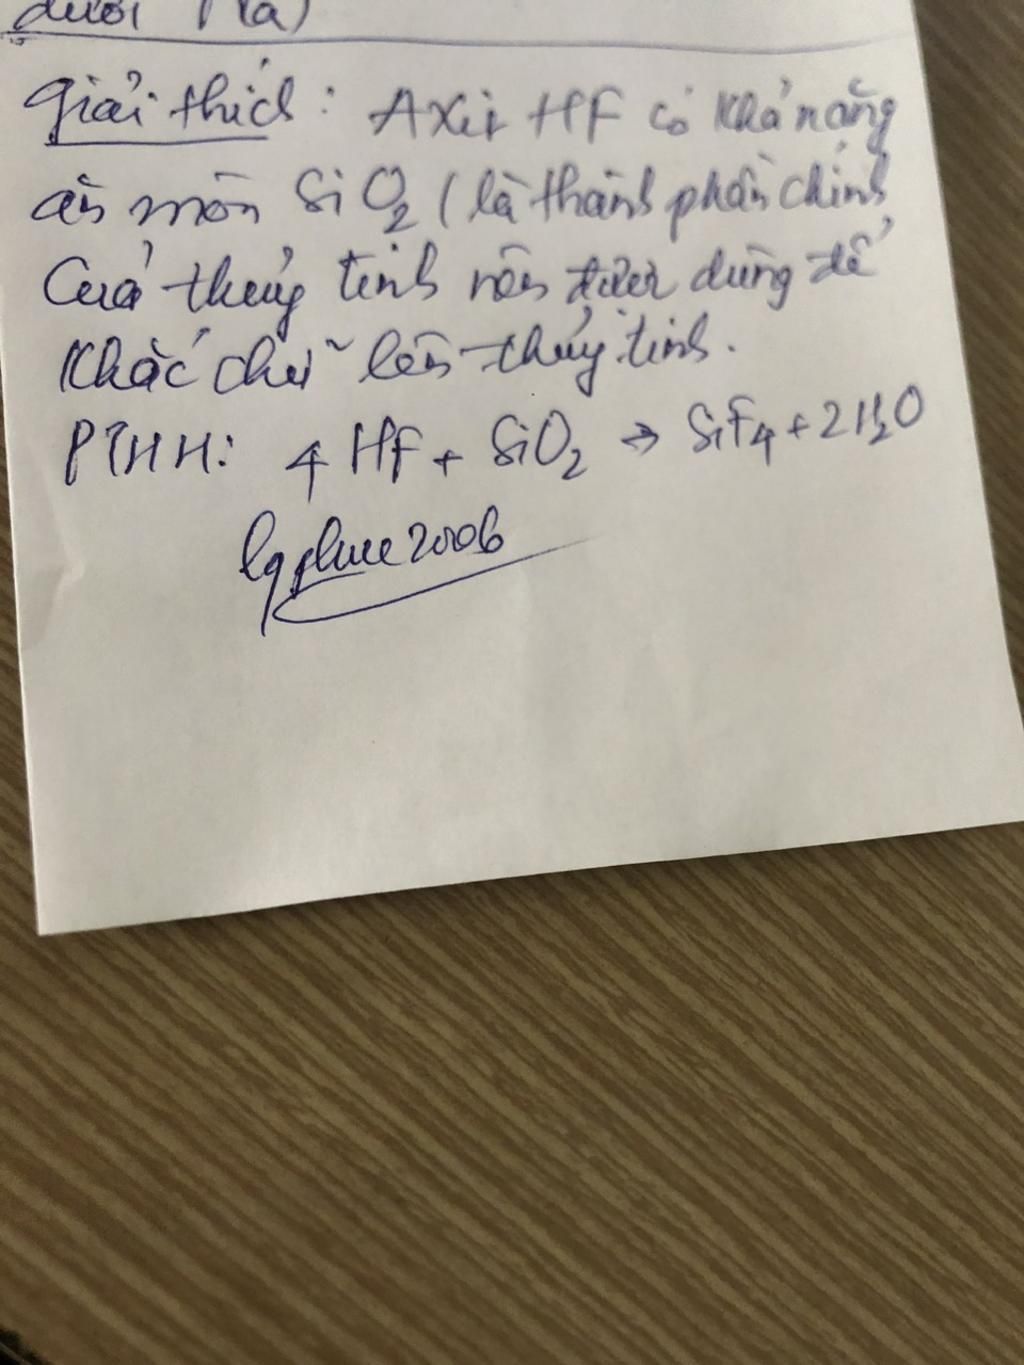 dưới
Giải thích: Axit HF có khả năng
ăn mòn SiO₂ (là thành phần chính
Của thủy tinh nên được dùng để
Khắc chữ lên thủy tinh.
PTHH: 4 HF + SiO₂ → SiF₄ + 2H₂O
lqphuc2006